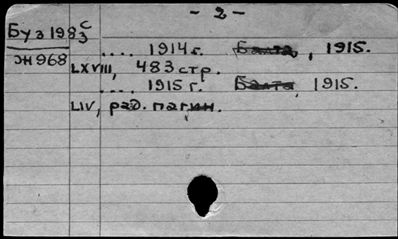 - 2 -
Буз 1983 с
Ж968
.... 1914 г. Балта, 1915.
LXVIII, 483 стр.
.... 1915 г. Балта, 1915.
LIV, раз. пагин.